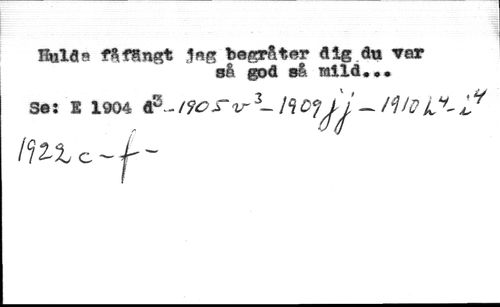 Hulda fåfängt jag begråter dig du var
så god så mild...
Se: E 1904 d³ - 1905 v³ - 1909 jj - 1910 h⁴ - i⁴
1922 c - f -